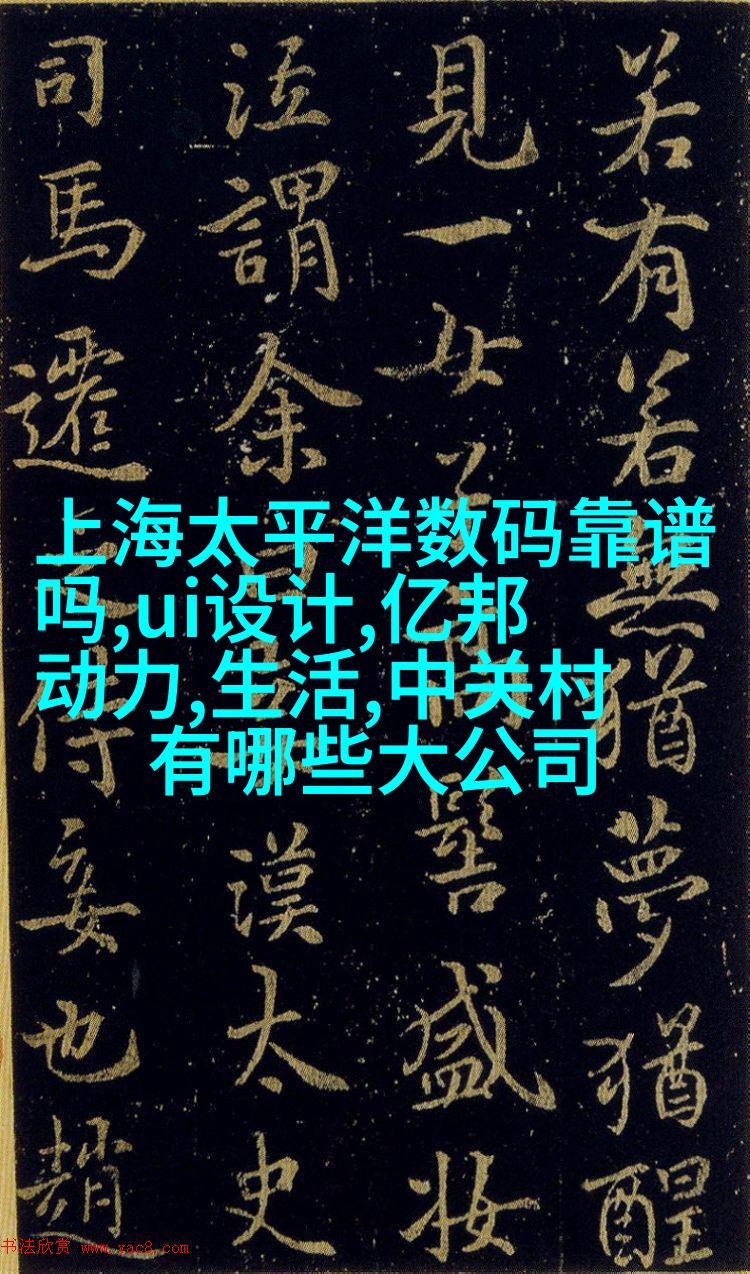 若有若無猶夢猶醒
見一女子高髻盛妝
泣謂余曰漢太史
司馬遷侍妾也趙
上海太平洋数码靠谱
吗,ui设计,亿邦
动力,生活,中关村
有哪些大公司
书法欣赏 www.yac8.com